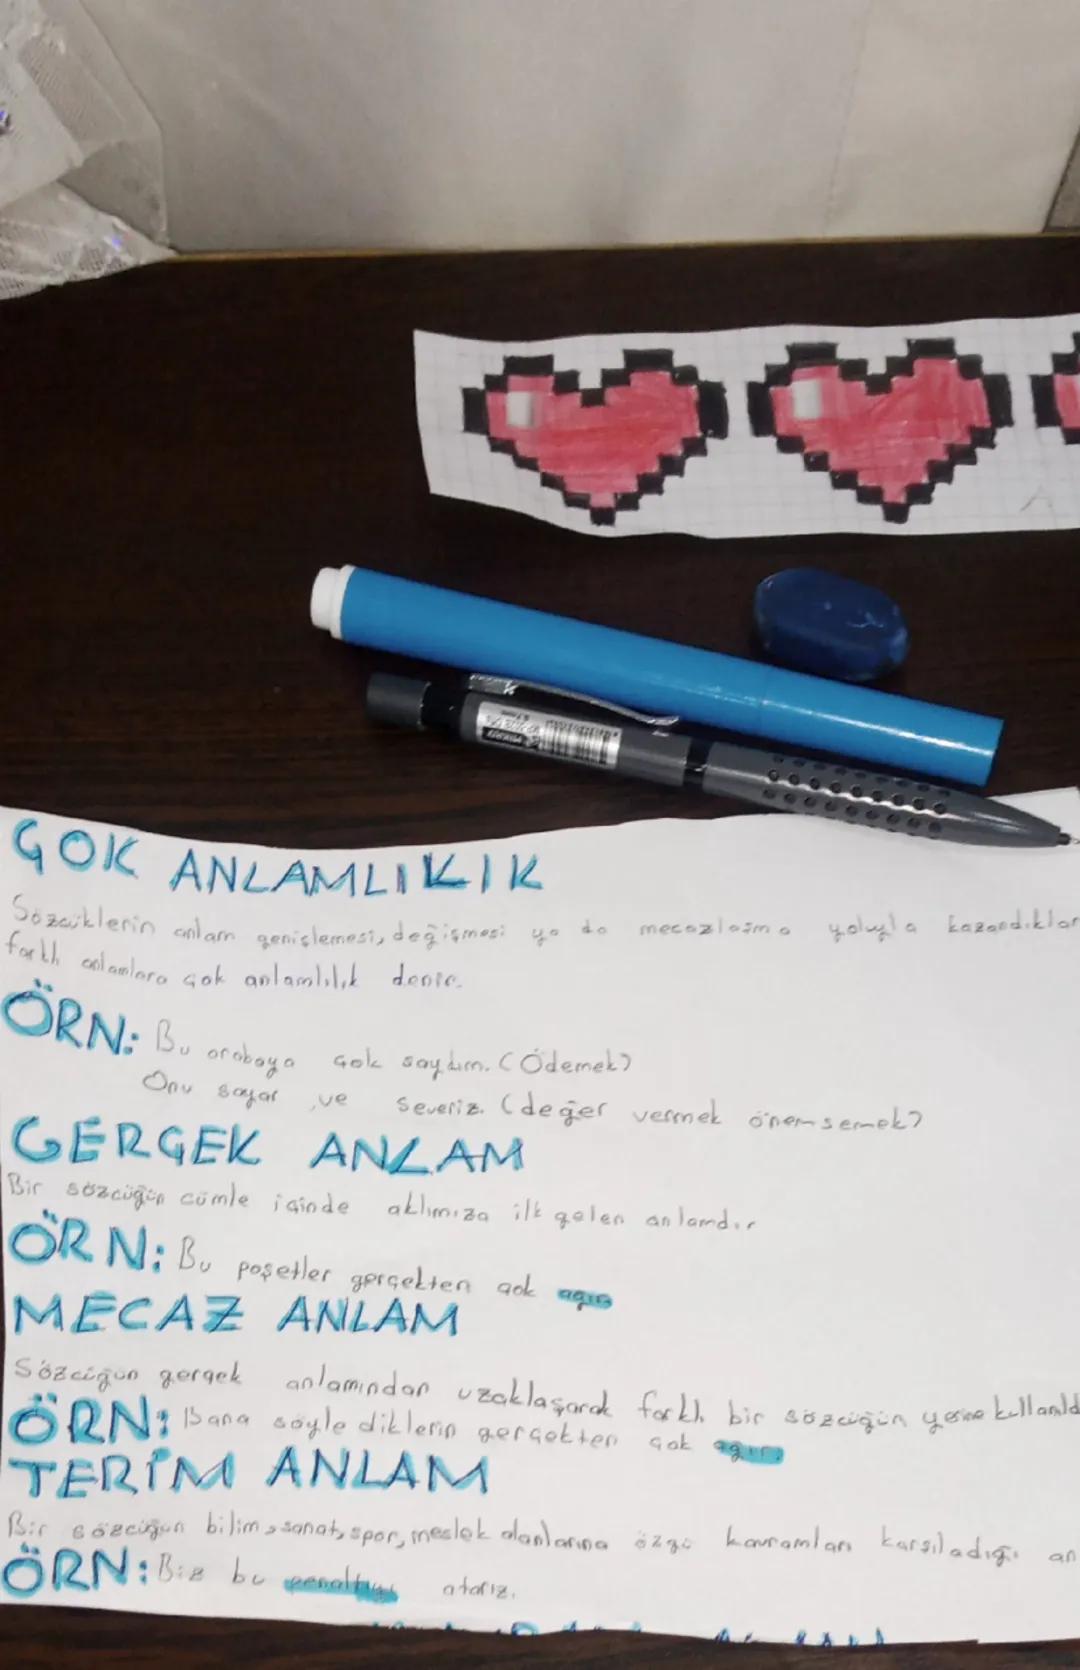 ÇOK ANLAMLIKIK
Sözcüklerin anlam genişlemesi, değişmesi ya da mecazlaşma yoluyla kazandıkları
farklı anlamlara çok anlamlılık denir.
ÖRN: Bu arabaya çok saydım. (Ödemek)
Onu sayar ve severiz. (değer vermek önemsemek)
GERÇEK ANLAM
Bir sözcüğün cümle içinde aklımıza ilk gelen anlamdır
ÖRN: Bu poşetler gerçekten çok ağır
MECAZ ANLAM
Sözcüğün gerçek anlamından uzaklaşarak farklı bir sözcüğün yerine kullanıld
ÖRN: Bana söyledıklerin gerçekten çok ağır.
TERİM ANLAM
Bir sözcüğün bilim, sanat, spor, meslek alanlarına özgü kavramları karşıladığı an
ÖRN: Biz bu penaltıyı atarız.